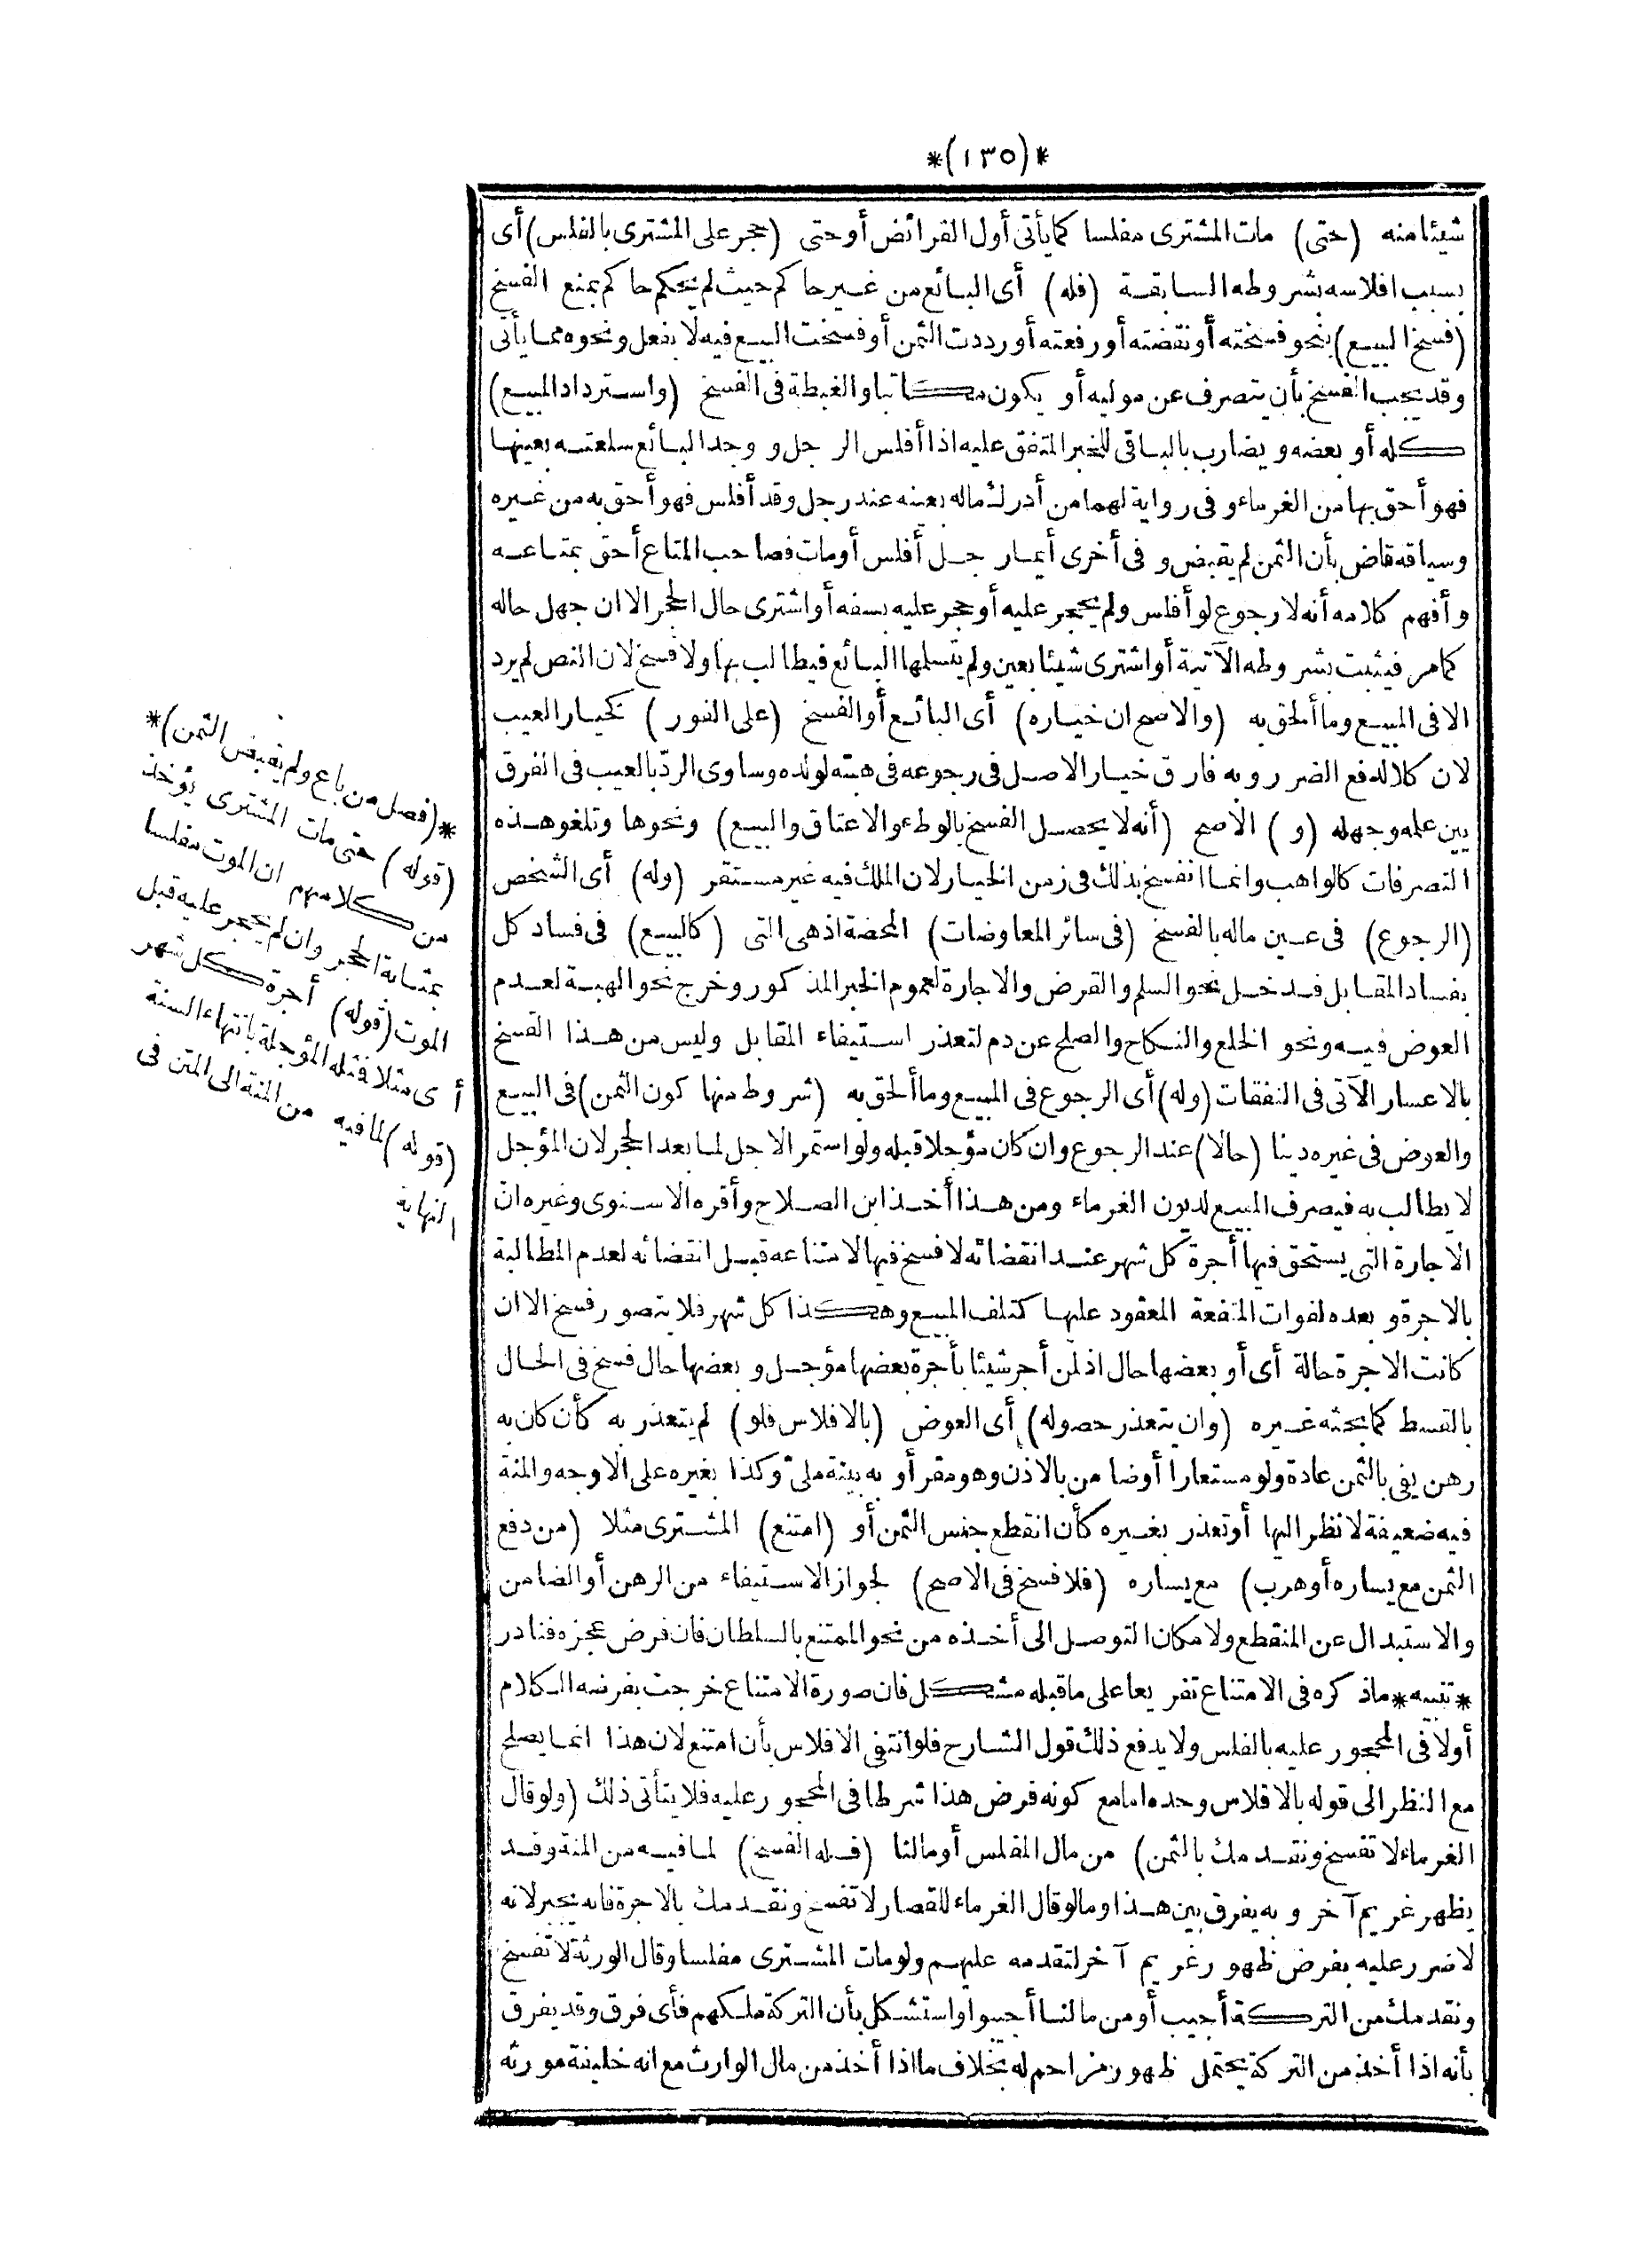 *(١٣٥)*
شيئا منه (حتى) مات المشترى مفلسا كما يأتى أول الفرائض أو حتى (حجر على المشترى بالفلس) أى
بسبب افلاسه بشروطه السابقة (فله) أى البائع من غير حاكم حيث لم يحكم حاكم بمنع الفسخ
(فسخ البيع) بنحو فسخته أو نقضته أو رفعته أو رددت الثمن أو فسخت البيع فيه لا بفعل ونحوه مما يأتى
وقد يجب الفسخ بأن يتصرف عن موليه أو يكون مكاتبا والغبطة فى الفسخ (واسترداد المبيع)
كله أو بعضه ويضارب بالباقى للخبر المتفق عليه اذا أفلس الرجل ووجد البائع سلعته بعينها
فهو أحق بها من الغرماء وفى رواية لهما من أدرك ماله بعينه عند رجل وقد أفلس فهو أحق به من غيره
وسياقه قاض بأن الثمن لم يقبض وفى أخرى أيما رجل أفلس أو مات فصاحب المتاع أحق بمتاعه
وأفهم كلامه أنه لا رجوع لو أفلس ولم يحجر عليه أو حجر عليه بسفه أو اشترى حال الحجر الا ان جهل حاله
كما مر فيثبت بشروطه الآتية أو اشترى شيئا بعين ولم يتسلمها البائع فيطالب بها ولا فسخ لان النص لم يرد
الا فى المبيع وما ألحق به (والاصح ان خياره) أى البائع أو الفسخ (على الفور) كخيار العيب
لان كلا لدفع الضرر وبه فارق خيار الاصل فى رجوعه فى هبته لولده وساوى الردّ بالعيب فى الفرق
بين علمه وجهله (و) الاصح (أنه لا يحصل الفسخ بالوطء والاعتاق والبيع) ونحوها وتلغو هذه
التصرفات كالواهب وانما انفسخ بذلك فى زمن الخيار لان الملك فيه غير مستقر (وله) أى الشخص
(الرجوع) فى عين ماله بالفسخ (فى سائر المعاوضات) المحضة اذ هى التى (كالبيع) فى فساد كل
بفساد المقابل فدخل نحو السلم والقرض والاجارة لعموم الخبر المذكور وخرج نحو الهبة لعدم
العوض فيه ونحو الخلع والنكاح والصلح عن دم لتعذر استيفاء المقابل وليس من هذا الفسخ
بالاعسار الآتى فى النفقات (وله) أى الرجوع فى المبيع وما ألحق به (شروط منها كون الثمن) فى البيع
والعوض فى غيره دينا (حالا) عند الرجوع وان كان مؤجلا قبله ولو استمر الاجل لما بعد الحجر لان المؤجل
لا يطالب به فيصرف المبيع لديون الغرماء ومن هذا أخذ ابن الصلاح وأقره الاسنوى وغيره ان
الاجارة التى يستحق فيها أجرة كل شهر عند انقضائه لا فسخ فيها لامتناعه قبل انقضائه لعدم المطالبة
بالاجرة وبعده لفوات المنفعة المعقود عليها كتلف المبيع وهكذا كل شهر فلا يتصور فسخ الا ان
كانت الاجرة حالة أى أو بعضها حال اذ لمن أجر شيئا بأجرة بعضها مؤجل وبعضها حال فسخ فى الحال
بالقسط كما بحثه غيره (وان يتعذر حصوله) أى العوض (بالافلاس فلو) لم يتعذر به كأن كان به
رهن يفى بالثمن عادة ولو مستعارا أو ضامن بالاذن وهو مقر أو به بينة ملىّ وكذا بغيره على الاوجه والمنة
فيه ضعيفة لا نظر اليها أو تعذر بغيره كأن انقطع جنس الثمن أو (امتنع) المشترى مثلا (من دفع
الثمن مع يساره أو هرب) مع يساره (فلا فسخ فى الاصح) لجواز الاستيفاء من الرهن أو الضامن
والاستبدال عن المنقطع ولامكان التوصل الى أخذه من نحو الممتنع بالسلطان فان فرض عجزه فنادر
*تنبيه* ما ذكره فى الامتناع تفريعا على ما قبله مشكل فان صورة الامتناع خرجت بفرضه الكلام
أولا فى المحجور عليه بالفلس ولا يدفع ذلك قول الشارح فلو انتفى الافلاس بأن امتنع لان هذا انما يصلح
مع النظر الى قوله بالافلاس وحده امامع كونه فرض هذا شرطا فى المحجور عليه فلا يتأتى ذلك (ولو قال
الغرماء لا تفسخ ونقدمك بالثمن) من مال المفلس أو مالنا (فله الفسخ) لما فيه من المنة وقد
يظهر غريم آخر وبه يفرق بين هذا وما لو قال الغرماء للقصار لا تفسخ ونقدمك بالاجرة فانه يجبر لانه
لا ضرر عليه بفرض ظهور غريم آخر لتقدمه عليهم ولو مات المشترى مفلسا وقال الورثة لا تفسخ
ونقدمك من التركة أجيب أو من مالنا أجيبوا واستشكل بأن التركة ملكهم فأى فرق وقد يفرق
بأنه اذا أخذ من التركة يحتمل ظهور مزاحم له بخلاف ما اذا أخذ من مال الوارث مع انه خليفة مورثه
*(فصل من باع ولم يقبض الثمن)*
(قوله) حتى مات المشترى يؤخذ
من كلامهم ان الموت مفلسا
بمثابة الحجر وان لم يحجر عليه قبل
الموت (قوله) أجرة كل شهر
أى مثلا فمثله المؤجلة بانتهاء السنة
(قوله) لما فيه من المنة الى المتن فى
النهاية